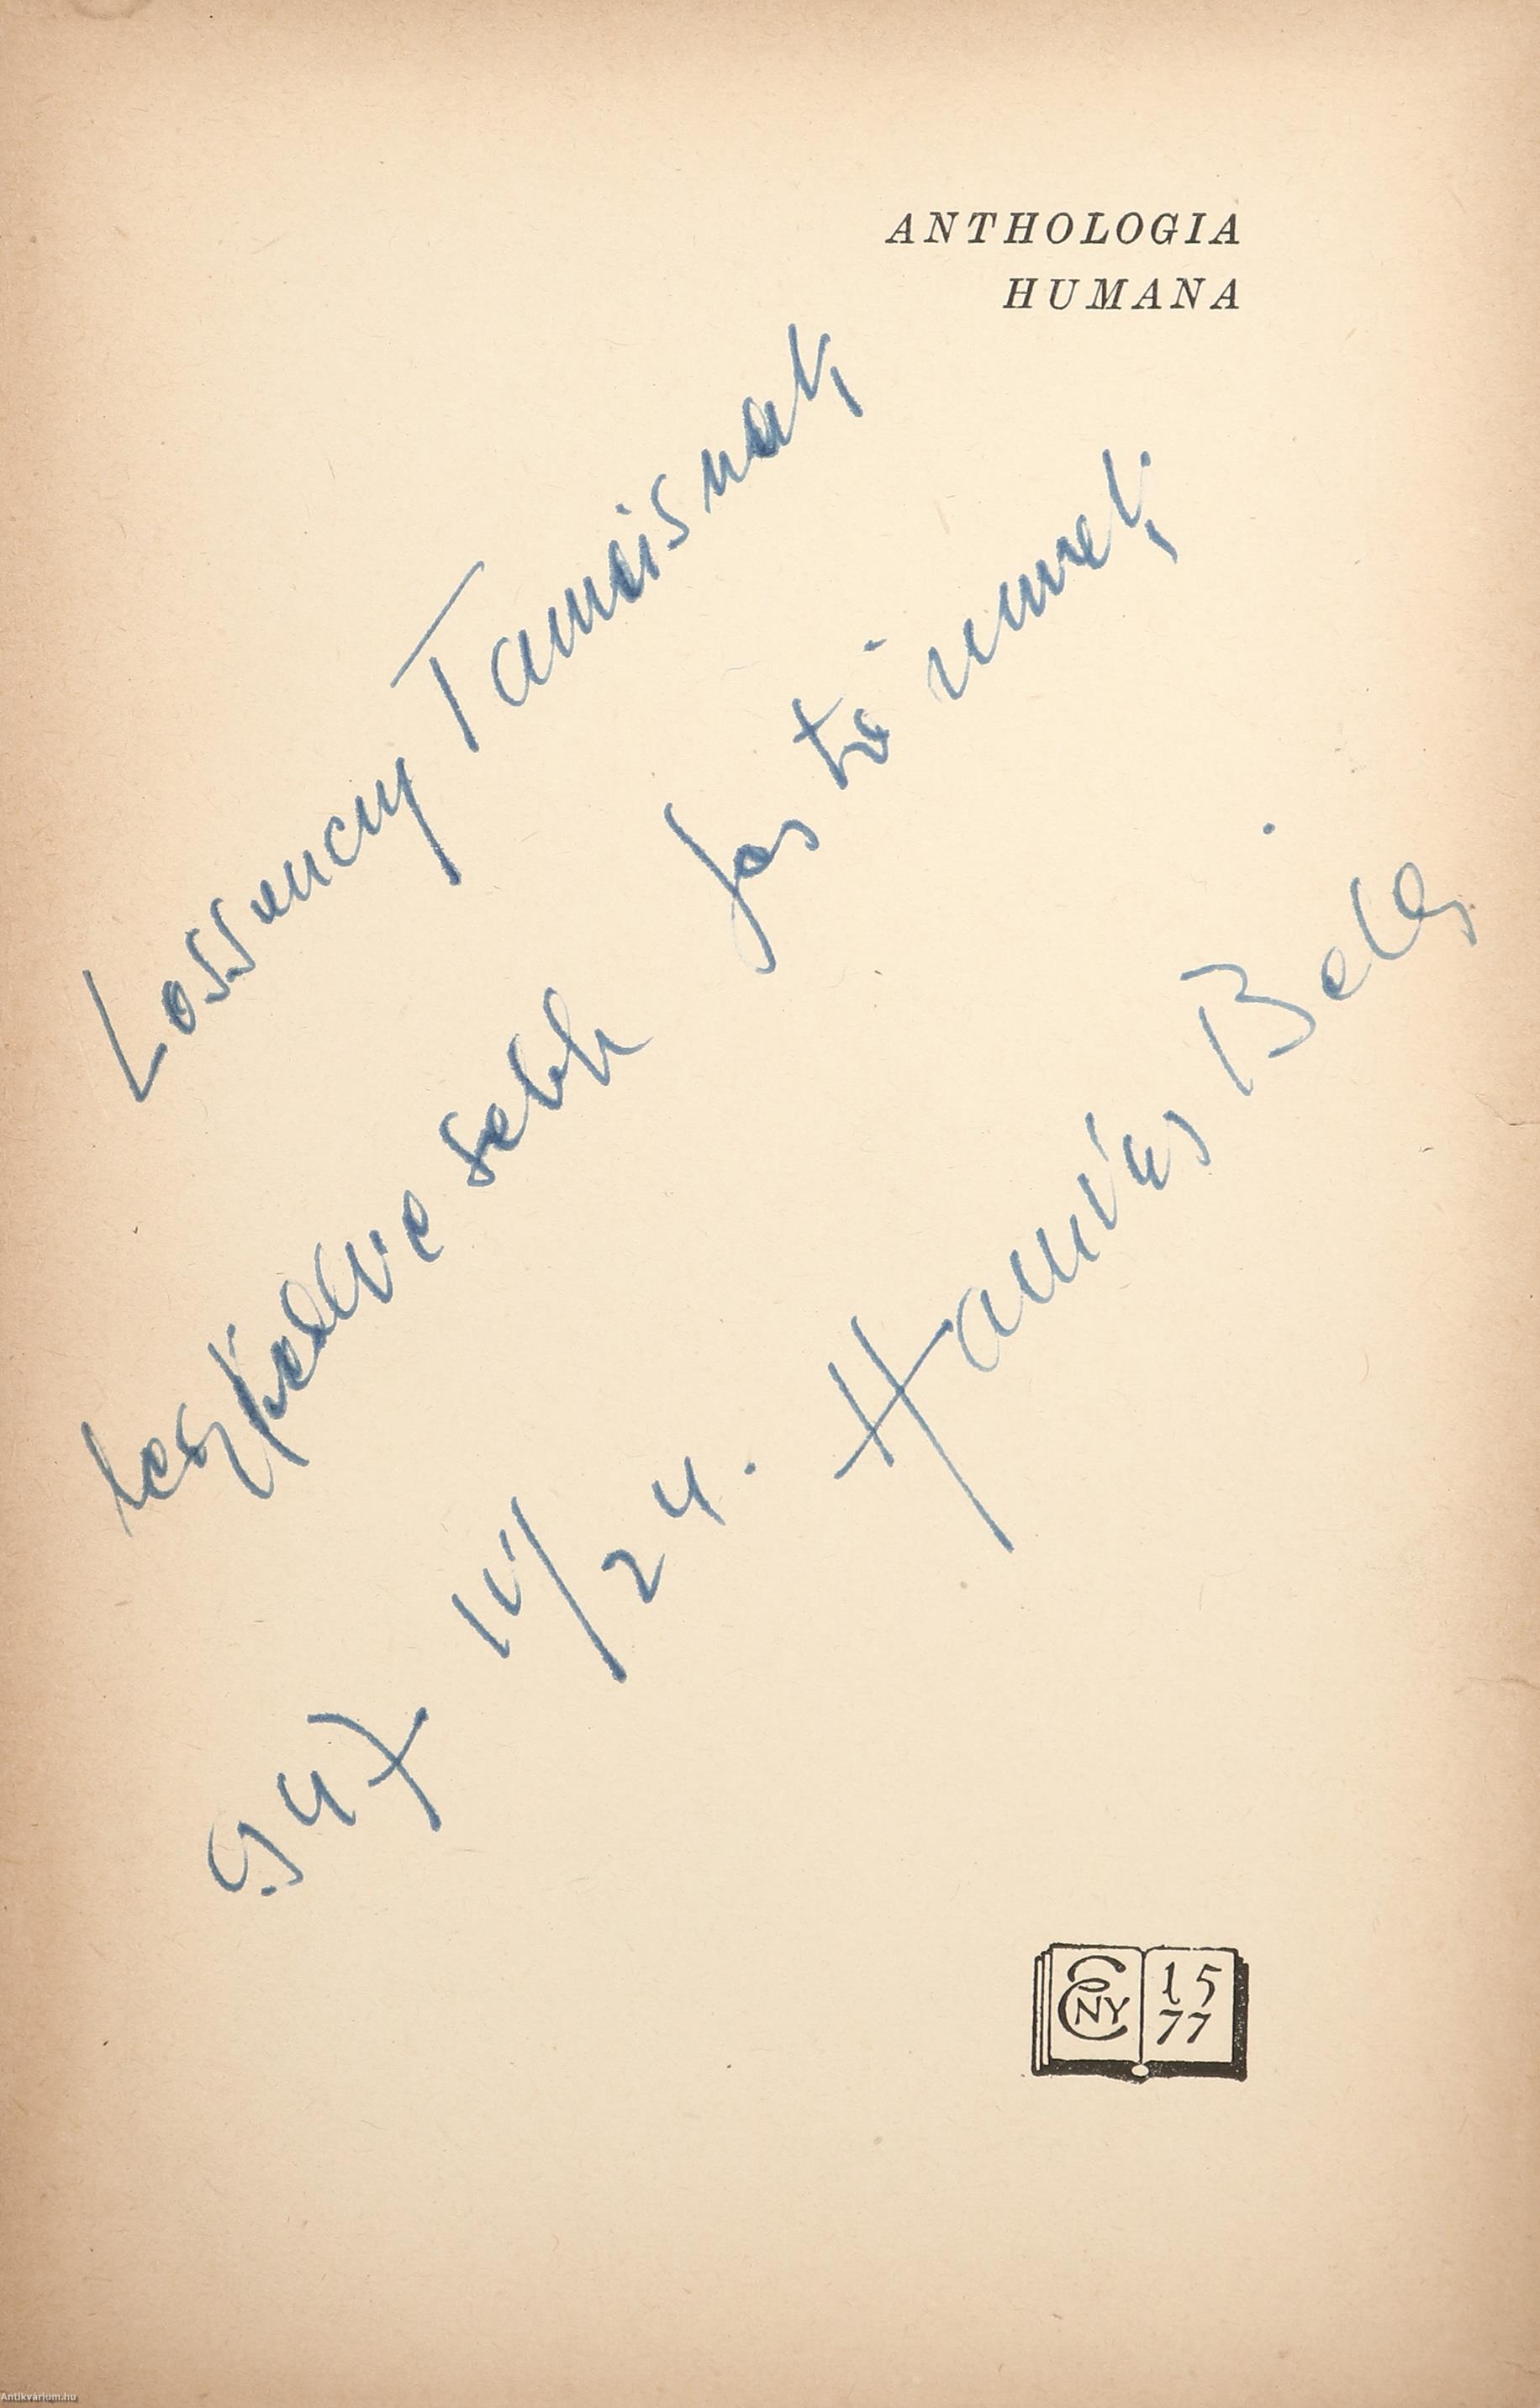 ANTHOLOGIA
HUMANA
Lossonczy Tamásnak,
legkedvesebb festőmnek,
947 IV/24. Hamvas Béla
ENY 15
77
Antikvárium.hu